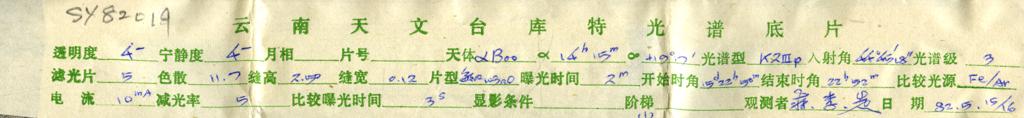 SY82019
云南天文台库特光谱底片
透明度 4- 宁静度 4- 月相 片号 天体 αBoo α 14h 15m 光谱型 K2IIIp 入射角 光谱级 3
滤光片 5 色散 11.7 缝高 缝宽 0.12 片型 曝光时间 2m 开始时角 结束时角 22h 52m 比较光源 Fe/Ar
电流 10mA 减光率 5 比较曝光时间 3s 显影条件 阶梯 观测者 日期 82.5.15/16